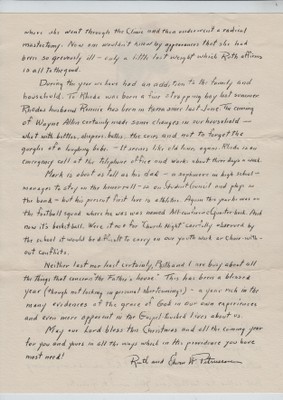 where she went through the Clinic and then underwent a radical
mastectomy. Now one wouldn't know by appearances that she had
been so grievously ill - only a little lost weight which Ruth affirms
is all to the good.
During the year we have had an addition to the family and
household. To Rhoda was born a fine strapping boy last summer
Rhoda's husband Ronnie has been in service since last June. The coming
of Wayne Allen certainly made some changes in our household -
what with bottles, diapers, rattles, the cries, and not to forget the
gurgles of a laughing babe. - It seems like old times again. Rhoda is an
emergency call at the telephone office and works about three days a week.
Mark is about tall as his dad - a sophomore in high school -
manages to stay on the honor roll - is on Student Council and plays in
the band - but his present first love is athletics. Again this year he was on
the football squad where he was named All-Conference Quarter back. And
now it's basketball. Were it not for "Church Night" carefully observed by
the school it would be difficult to carry on our youth work or Choir with-
out conflicts.
Neither last nor least certainly, Ruth and I are busy about all
the things that concern "the Father's house" This has been a blessed
year (though not lacking in personal shortcomings) - a year rich in the
many evidences of the grace of God in our own experiences
and even more apparent in the Gospel-touched lives about us.
May our Lord bless this Christmas and all the coming year
for you and yours in all the ways which in His providence you have
most need!
Ruth and